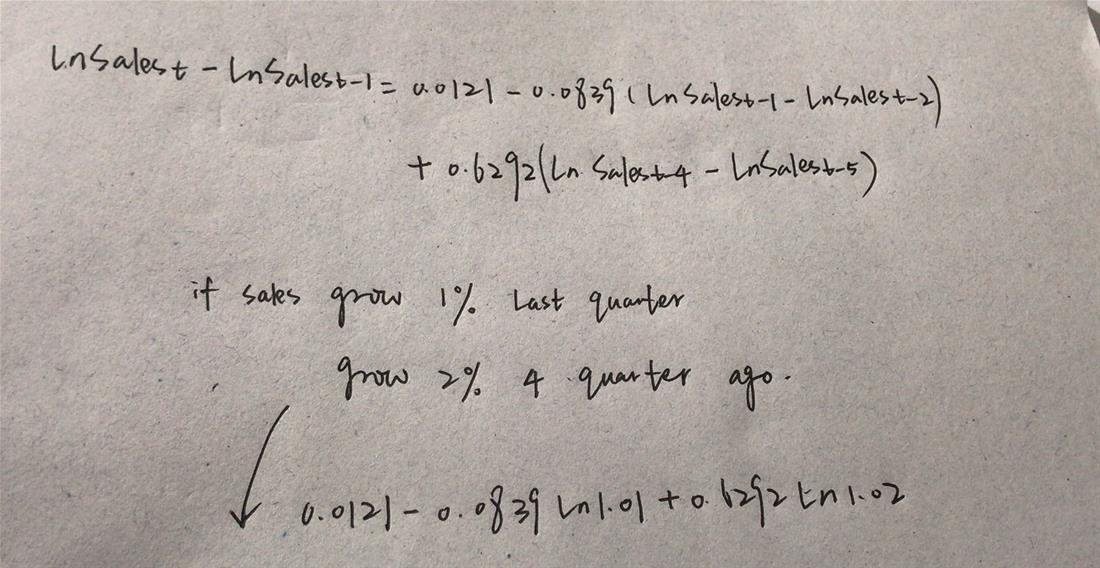 LnSalest - LnSalest-1 = 0.0121 - 0.0839 (LnSalest-1 - LnSalest-2)
+ 0.6292(Ln Salest-4 - LnSalest-5)
if sales grow 1% Last quarter
grow 2% 4 quarter ago.
0.0121 - 0.0839 Ln1.01 + 0.6292 Ln1.02